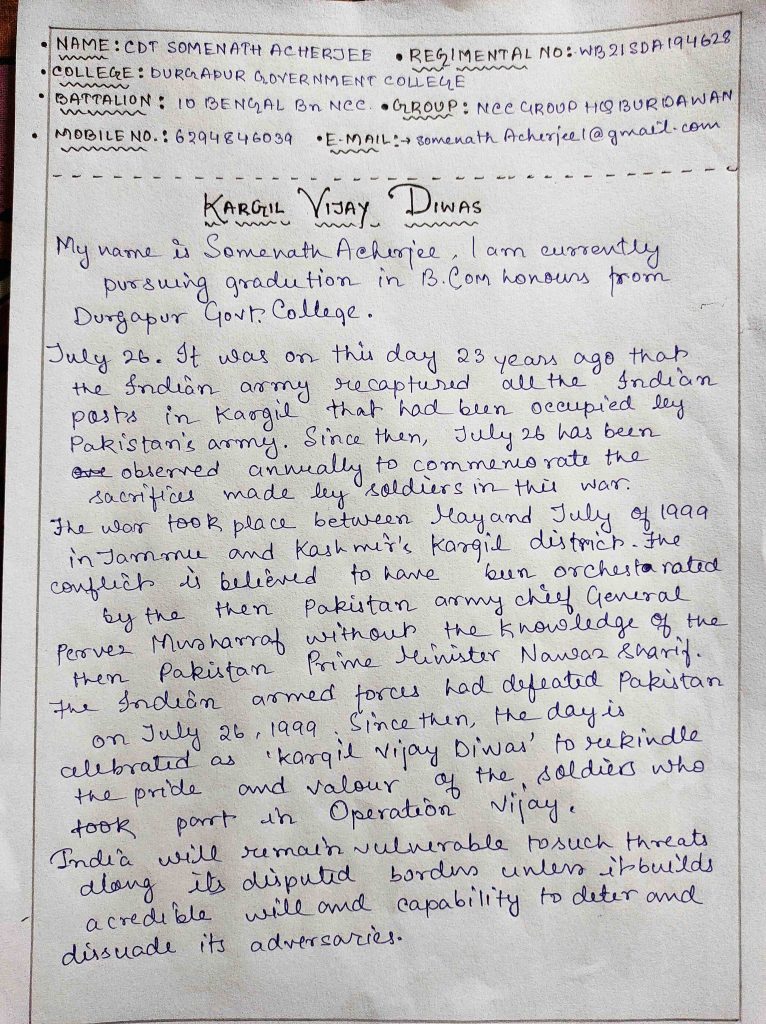 • NAME: CDT SOMENATH ACHERJEE • REGIMENTAL NO: WB21SDA194628
• COLLEGE: DURGAPUR GOVERNMENT COLLEGE
• BATTALION: 10 BENGAL Bn NCC. • GROUP: NCC GROUP HQ BURDAWAN
• MOBILE NO.: 6294846039 • E-MAIL:→ somenath Acherjee1@gmail.com
KARGIL VIJAY DIWAS
My name is Somenath Acherjee, I am currently
pursuing gradution in B.Com honours from
Durgapur Govt. College.
July 26. It was on this day 23 years ago that
the Indian army recaptured all the Indian
posts in Kargil that had been occupied by
Pakistan's army. Since then, July 26 has been
observed annually to commemorate the
sacrifices made by soldiers in this war.
The war took place between May and July of 1999
in Jammu and Kashmir's Kargil district. The
conflict is believed to have been orchestarated
by the then Pakistan army chief General
Pervez Musharraf without the knowledge of the
then Pakistan Prime Minister Nawaz Sharif.
The Indian armed forces had defeated Pakistan
on July 26, 1999. Since then, the day is
celebrated as 'Kargil Vijay Diwas' to rekindle
the pride and valour of the soldiers who
took part in Operation Vijay.
India will remain vulnerable to such threats
along its disputed borders unless it builds
a credible will and capability to deter and
dissuade its adversaries.